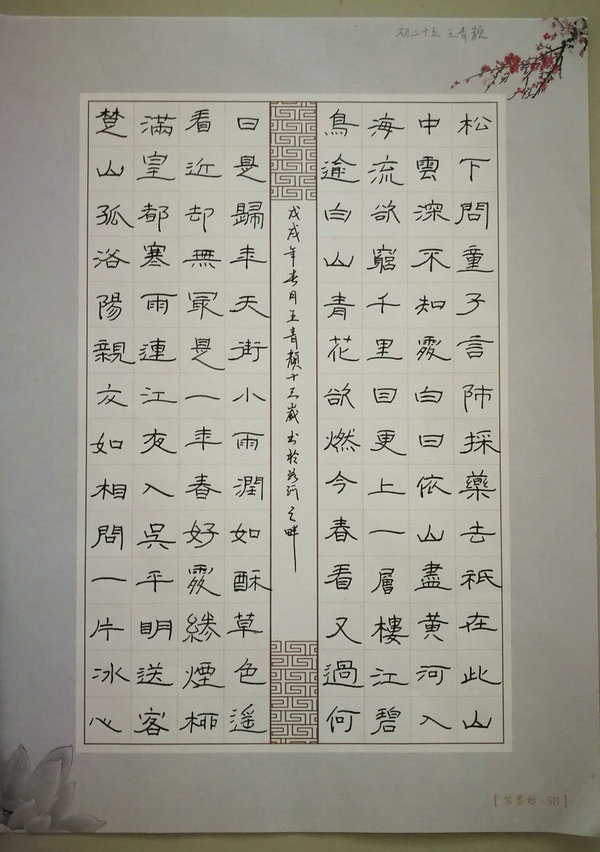 初二十五 王青颜
松下問童子言師採藥去祇在此山
中雲深不知處白日依山盡黃河入
海流欲窮千里目更上一層樓江碧
鳥逾白山青花欲燃今春看又過何
戊戌年春月王青顏十三歲書於 之畔
日是歸年天街小雨潤如酥草色遙
看近却無最是一年春好處 煙柳
滿皇都寒雨連江夜入吳平明送客
楚山孤洛陽親友如相問一片冰心
58